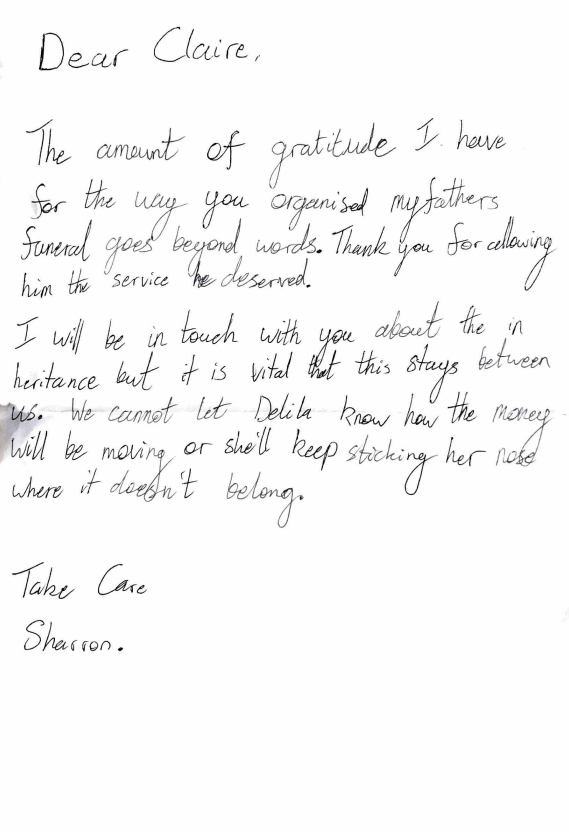 Dear Claire,
The amount of gratitude I have
for the way you organised my fathers
funeral goes beyond words. Thank you for allowing
him the service he deserved.
I will be in touch with you about the in
heritance but it is vital that this stays between
us. We cannot let Delila know how the money
will be moving or she'll keep sticking her nose
where it doesn't belong.
Take Care
Sharron.